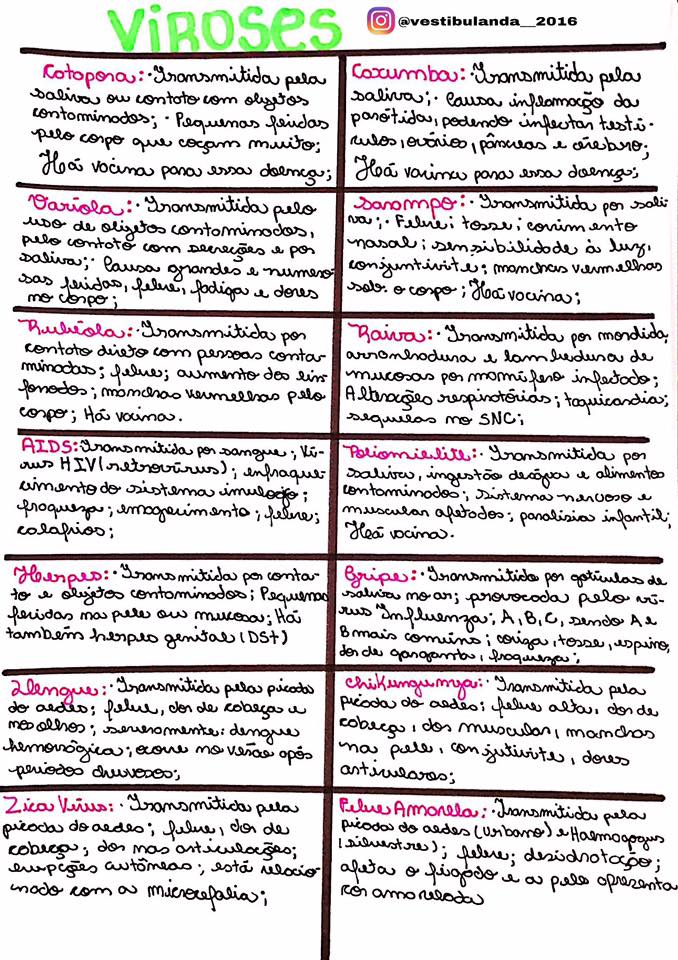 VIROSES
@vestibulanda__2016
Catapora:· Transmitida pela
saliva ou contato com objetos
contaminados; · Pequenas feridas
pelo corpo que coçam muito;
Há vacina para essa doença;
Caxumba:· Transmitida pela
saliva;· Causa inflamação da
parótida, podendo infectar testí-
culos, ovários, pâncreas e cérebro;
Há vacina para essa doença;
Varíola:· Transmitida pelo
uso de objetos contaminados,
pelo contato com secreções e por
saliva;· Causa grandes e numero-
sas feridas, febre, fadiga e dores
no corpo;
Sarampo:· Transmitida por sali
va;· Febre; tosse; corrimento
nasal; sensibilidade à luz,
conjuntivite; manchas vermelhas
sob. o corpo; Há vacina;
Rubéola:· Transmitida por
contato direto com pessoas conta-
minadas; febre; aumento dos lin
fonodos; manchas vermelhas pelo
corpo; Há vacina.
Raiva:· Transmitida por mordida,
arranhadura e lambedura de
mucosas por mamífero infectado;
Alterações respiratórias; taquicardia;
sequelas no SNC;
AIDS: Transmitida por sangue; Ví-
rus HIV (retrovírus); enfraque-
cimento do sistema imulogo;
fraqueza; emagrecimento; febre;
calafrios;
Poliomielite:· Transmitida por
saliva, ingestão de água e alimentos
contaminados; sistema nervoso e
muscular afetados; paralisia infantil;
Há vacina.
Herpes:· Transmitida por conta-
to e objetos contaminados; Pequenas
feridas na pele ou mucosa; Há
também herpes genital (DST)
Gripe:· Transmitida por gotículas de
saliva no ar; provocada pelo ví-
rus "Influenza; A, B, C, sendo A e
B mais comuns; coriza, tosse, espirro,
dor de garganta, fraqueza;
Dengue:· Transmitida pela picada
do aedes; febre, dor de cabeça e
nos olhos; severamente: dengue
hemorrágica; ocorre no verão após
períodos chuvosos;
Chikungunya:· Transmitida pela
picada do aedes; febre alta, dor de
cabeça, dos muscular, manchas
na pele, conjutivite, dores
articulares;
Zica Vírus:· Transmitida pela
picada do aedes; febre, dor de
cabeça; dos nas articulações;
erupções cutâneas; está relacio
nado com a microcefalia;
Febre Amarela:· Transmitida pela
picada do aedes (urbano) e Haemagogus
(silvestre); febre; desidratação;
afeta o fígado e a pele apresenta
cor amarelada